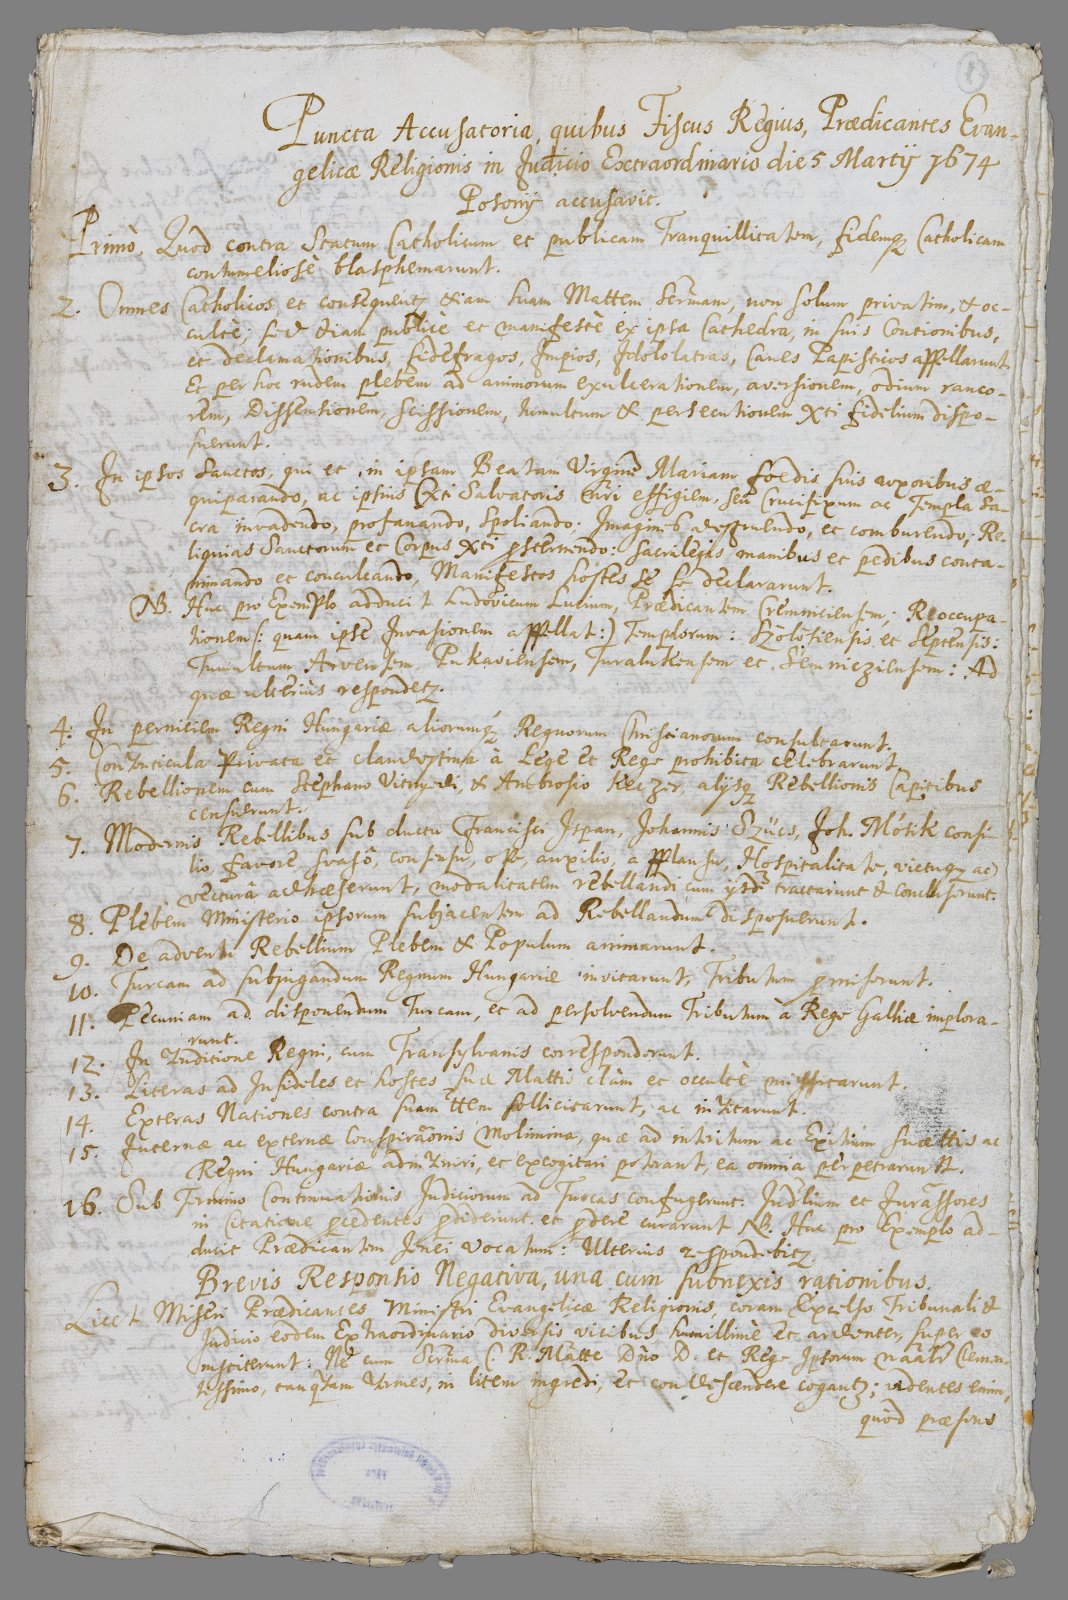 Puncta Accusatoria, quibus Fiscus Regius, Prædicantes Evan-
gelicæ Religionis in Judicio Extraordinario die 5 Martÿ 1674
Posonÿ accusavit.
Primò, Quod contra Statum Catholicum et publicam Tranquillitatem, fidemq3 Catholicam
contumeliosè blasphemarunt.
2. Omnes Catholicos et consequent3 etiam suam Mattem Sermam, non solum privatim, & oc-
culte; sed etiam publicè et manifestè ex ipsa Cathedra, in suis Contionibus,
et declamationibus, fidefragos, Impios, Idololatras, Canes Papisticos appellarunt
Et per hoc rudem plebem ad animorum exulcerationem, aversionem, odium ranco-
rem, Dissentionem, scissionem, tumultum & persecutionem Xti fidelium dispo-
suerunt.
3. In ipsos Sanctos, qui et in ipsam Beatam Virginē Mariam foedis suis uxoribus æ-
quiparando, ac ipsius Xti Salvatoris nri effigiem, seu Crucifixum ac Templa Sa-
cra invadendo, profanando, spoliando: Imagines destruendo, et comburendo; Re-
liquias Sanctorum et Corpus Xti psternendo: sacrilegis manibus et pedibus conta-
minando et conculcando, Manifestos hostes se declararunt.
NB. Huc pro Exemplo adducit Ludovicum Lucium, Prædicantem Cremniciensem; Reoccupa-
tionem (: quam ipse Invasionem appellat :) Templorum: Szölösiensis et Septensis:
Tumultum Arvensem, Pukaviensem, Turalukensem et Semnieziensem: Ad
quæ ulteriùs respondet3.
4. In perniciem Regni Hungariæ aliorumq3 Regnorum Christianorum consultarunt.
5. Conventicula Privata et clandestina à Lege et Rege prohibita celebrarunt.
6. Rebellionem cum Stephano Vitnyedi, & Ambrosio Keczer, alÿsq3 Rebellionis Capitibus
censuerunt.
7. Modernis Rebellibus sub ductu Francisci Ispan, Johannis Szücs, Joh. Mosik consi-
lio, favore, svasô, consensu, ope, auxilio, applausu, Hospitalitate, victuq3 ac
vecturâ adhæserunt, modalitatem rebellandi cum ÿsd tractarunt & concluserunt.
8. Plebem Ministerio ipsorum subjacentem ad Rebellandum disposuerunt.
9. De adventu Rebellium Plebem & Populum animarunt.
10. Turcam ad subjugandum Regnum Hungariæ invitarunt, Tributum pmiserunt.
11. Pecuniam ad disponendum Turcam, et ad persolvendum Tributum à Rege Galliæ implora-
runt.
12. In Perditione Regni, cum Transylvanis corresponderunt.
13. Literas ad Infideles et hostes suæ Mattis clàm et occultè missitarunt.
14. Exteras Nationes contra suam ttem sollicitarunt, ac invitarunt.
15. Internæ ac externæ Conspiraōnis Molimina, quæ ad interitum ac Exitium suæ ttis ac
Regni Hungariæ adinveniri, et excogitari poterant, ea omnia perpetrarunt.
16. Sub Termino Continuationis Judiciorum ad Turcas confugerunt. Judlium et Jurassores
in Citatione pcedentes pdiderunt et pdere curarunt NB. Huc pro Exemplo ad-
ducit Prædicantem Jenei vocatum: Ulterius respondebit3
Brevis Responsio Negativa, una cum subnexis rationibus.
Licet Miseri Prædicantes Ministri Evangelicæ Religionis, coram Excelso Tribunali &
Judicio eodem Extraordinario diversis vicibus humillimè et ardenter, super eo
institerunt: Ne cum Serma C. R. Matte Dño D. et Rege Ipsorum naali Clemen-
tissimo, tanquam Vermes, in litem ingredi, et condescendere cogant3; videntes enim,
quòd præsens